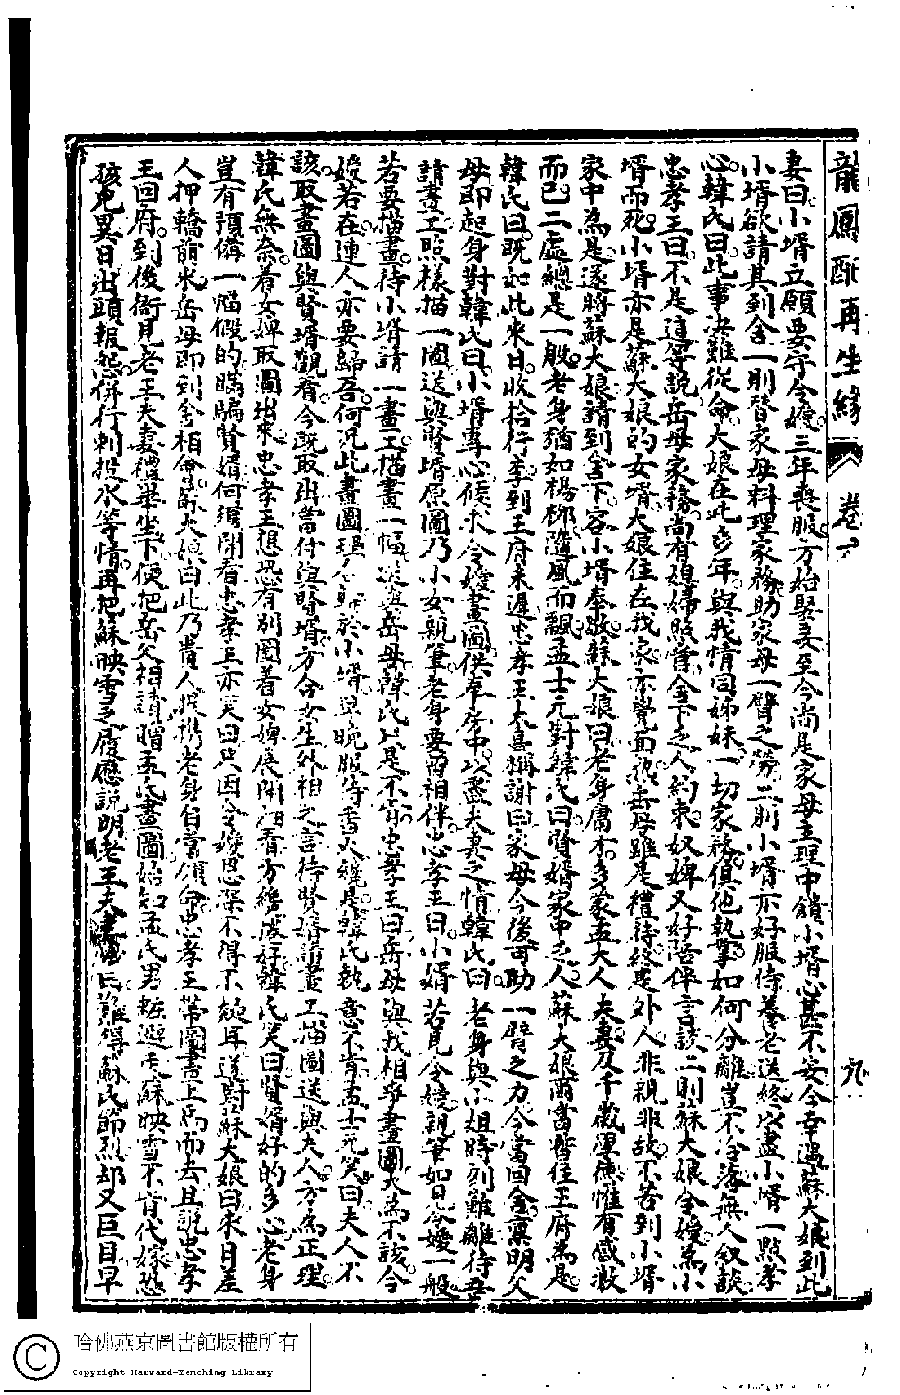 龍鳳配再生緣
卷
九
妻曰小壻立願要守令嬡三年喪服方始娶妾至今尚是家母主理中饋小壻心甚不安今幸遇蘇大娘到此
小壻欲請其到舍一則替家母料理家務助家母一臂之勞二則小壻亦好服侍養老送終以盡小壻一點孝
心韓氏曰此事決難從命大娘在此多年與我情同姊妹一切家務俱他執掌如何分離豈不冷落無人叙談
忠孝王曰不是這等說岳母家務尚有媳婦照管舍下之人約束奴婢又好陪伴言談二則蘇大娘令嬡為小
壻而死小壻亦是蘇大娘的女壻大娘住在我家亦覺面熟岳母雖是禮待終是外人非親非故不若到小壻
家中為是遂將蘇大娘請到舍下容小壻奉敬蘇大娘曰老身庸才多蒙孟大人夫妻及千歲厚德惟有感激
而已二處總是一般老身猶如楊柳隨風而飄孟士元對韓氏曰賢壻家中乏人蘇大娘爾當暫住王府為是
韓氏曰既如此來日收拾行李到王府未遲忠孝王大喜稱謝曰家母今後可助一臂之力今當回舍稟明父
母即起身對韓氏曰小壻專心候求令嬡畫圖供奉房中以盡夫妻之情韓氏曰老身與小姐時刻難離待吾
請畫工照樣描一圖送與賢壻原圖乃小女親筆老身要留相伴忠孝王曰小壻若見令嬡親筆如見令嬡一般
若要描畫待小壻請一畫工描畫一幅送與岳母韓氏只是不肯忠孝王曰岳母與我相爭畫圖大為不該令
嬡若在連人亦要歸吾何況此畫圖理合歸於小壻早晚服侍香火纔是韓氏執意不肯孟士元笑曰夫人不
該取畫圖與賢壻觀看今既取出當付與賢壻方合女生外相之言待賢壻請畫工描圖送與夫人方為正理
韓氏無奈着女婢取圖出來忠孝王想恐有別圖着女婢展開細看方纔收好韓氏笑曰賢壻好的多心老身
豈有預備一幅假的瞞騙賢壻何須開看忠孝王亦笑曰只因令嬡恩深不得不疑耳遂對蘇大娘曰來日差
人押轎前來岳母即到舍相會蘇大娘曰此乃貴人提携老身自當領命忠孝王帶圖畫上馬而去且說忠孝
王回府到後衙見老王夫妻禮畢坐下便把岳父相請贈孟氏畫圖始知孟氏男粧避去蘇映雪不肯代嫁恐
孩兒異日出頭報怨併行刺投水等情再把蘇映雪之履歷說明老王夫妻嘆曰難得蘇氏節烈却又巨目早
哈佛燕京圖書館版權所有
Copyright Harvard-Yenching Library